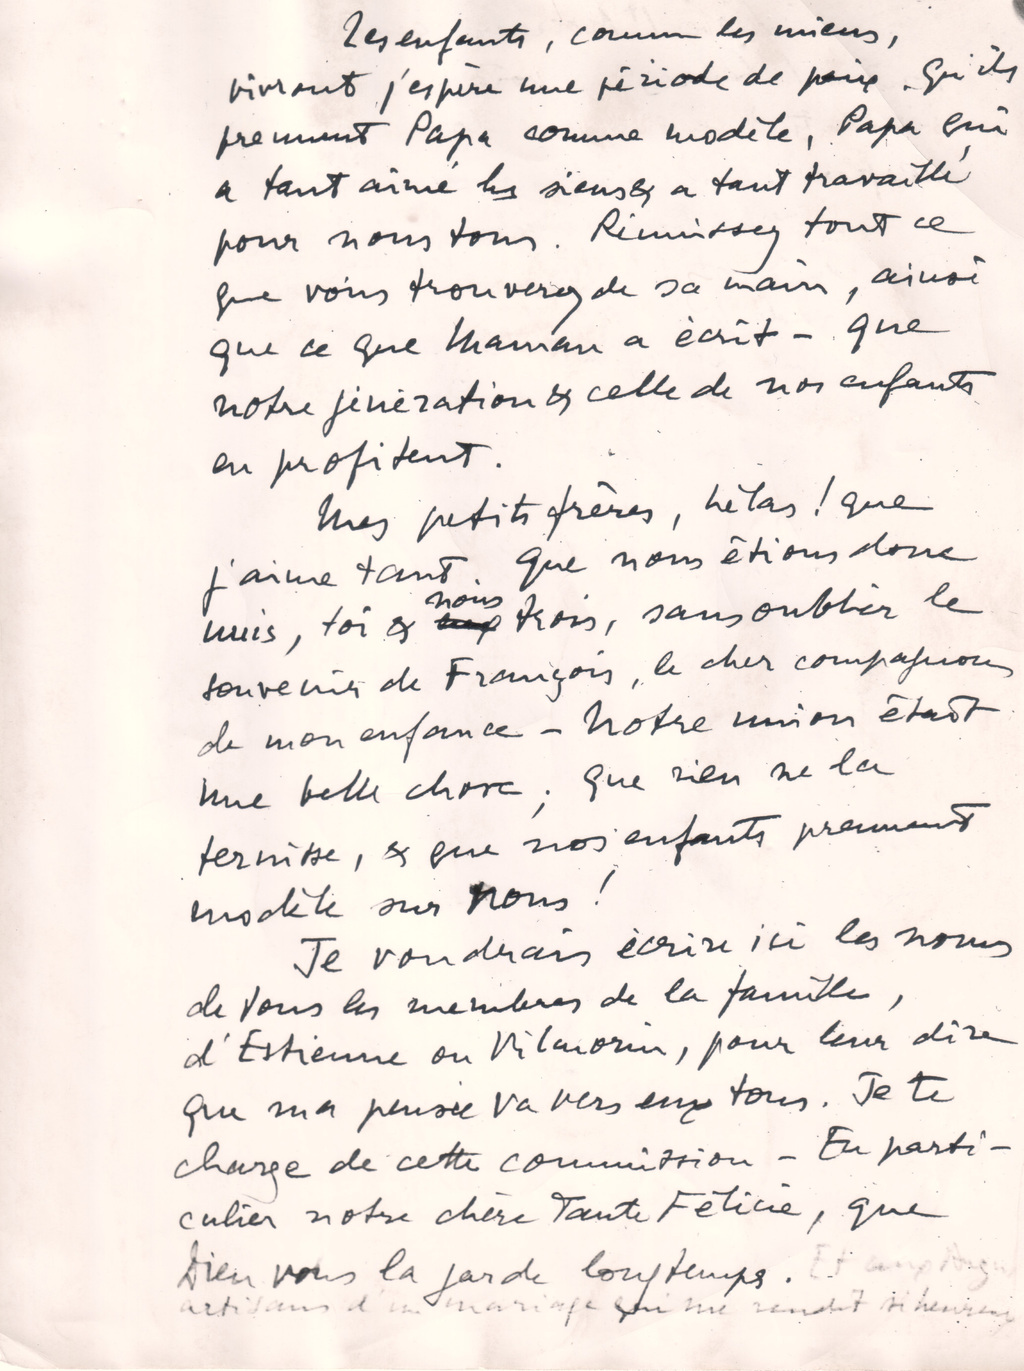 Les enfants, comme les miens,
vivront j'espère une période de paix. Qu'ils
prennent Papa comme modèle, Papa qui
a tant aimé les siens & a tant travaillé
pour nous tous. Réunissez tout ce
que vous trouverez de sa main, ainsi
que ce que Maman a écrit - que
notre génération & celle de nos enfants
en profitent.
Mes petits frères, hélas ! que
j'aime tant. Que nous étions donc
unis, toi & nous trois, sans oublier le
souvenir de François, le cher compagnon
de mon enfance - Notre union était
une belle chose ; que rien ne la
ternisse, & que nos enfants prennent
modèle sur nous !
Je voudrais écrire ici les noms
de tous les membres de la famille,
d'Estienne ou Vilmorin, pour leur dire
que ma pensée va vers eux tous. Je te
charge de cette commission - En parti-
culier notre chère Tante Félicie, que
Dieu vous la garde longtemps. Et aux
artisans d'un mariage qui me rendit si heureux